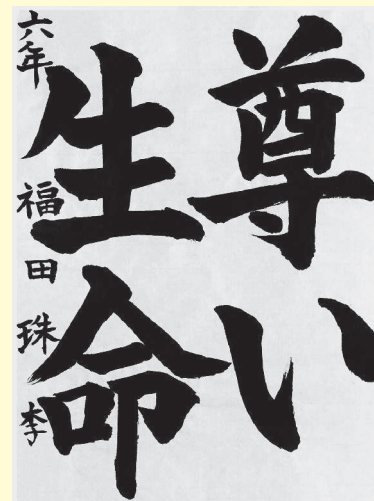 尊い
生命
六年 福田珠李